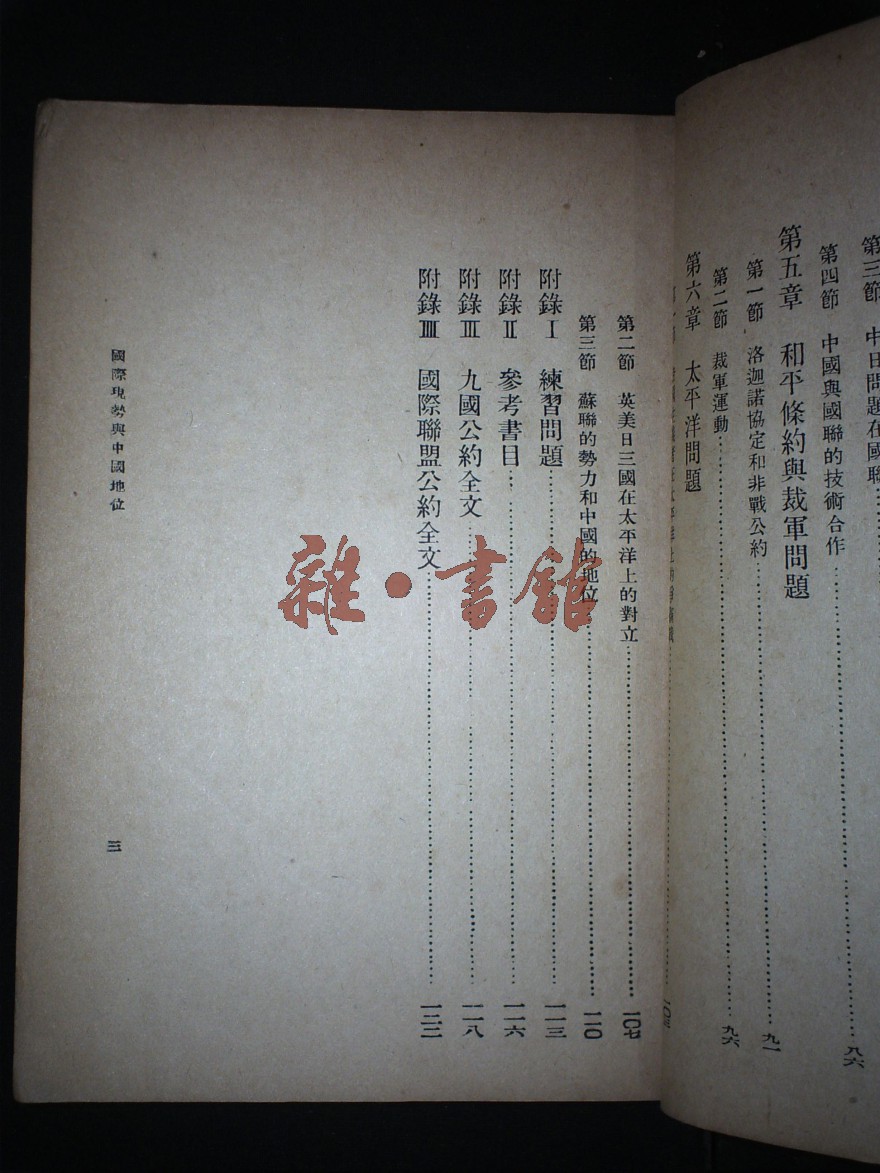 第三節 中日問題在國聯
第四節 中國與國聯的技術合作……八六
第五章 和平條約與裁軍問題
第一節 洛迦諾協定和非戰公約……九一
第二節 裁軍運動……九六
第六章 太平洋問題
第二節 英美日三國在太平洋上的對立……一〇七
第三節 蘇聯的勢力和中國的地位……一一〇
附錄Ⅰ 練習問題……一一三
附錄Ⅱ 參考書目……一一六
附錄Ⅲ 九國公約全文……一一八
附錄Ⅲ 國際聯盟公約全文……一二二
國際現勢與中國地位
三
雜·書館